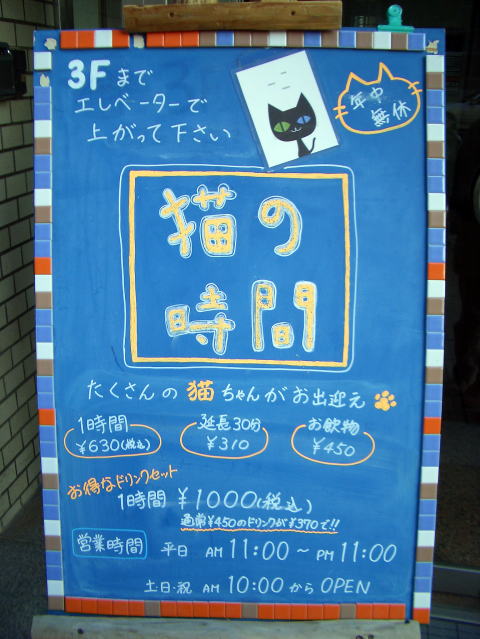 3Fまで
エレベーターで
上がって下さい
年中
無休
猫の
時間
たくさんの猫ちゃんがお出迎え
1時間
¥630(税込)
延長30分
¥310
お飲物
¥450
お得なドリンクセット
1時間 ¥1000(税込)
通常¥450のドリンクが¥370で!!
営業時間 平日 AM 11:00 ~ PM 11:00
土・日・祝 AM 10:00 から OPEN